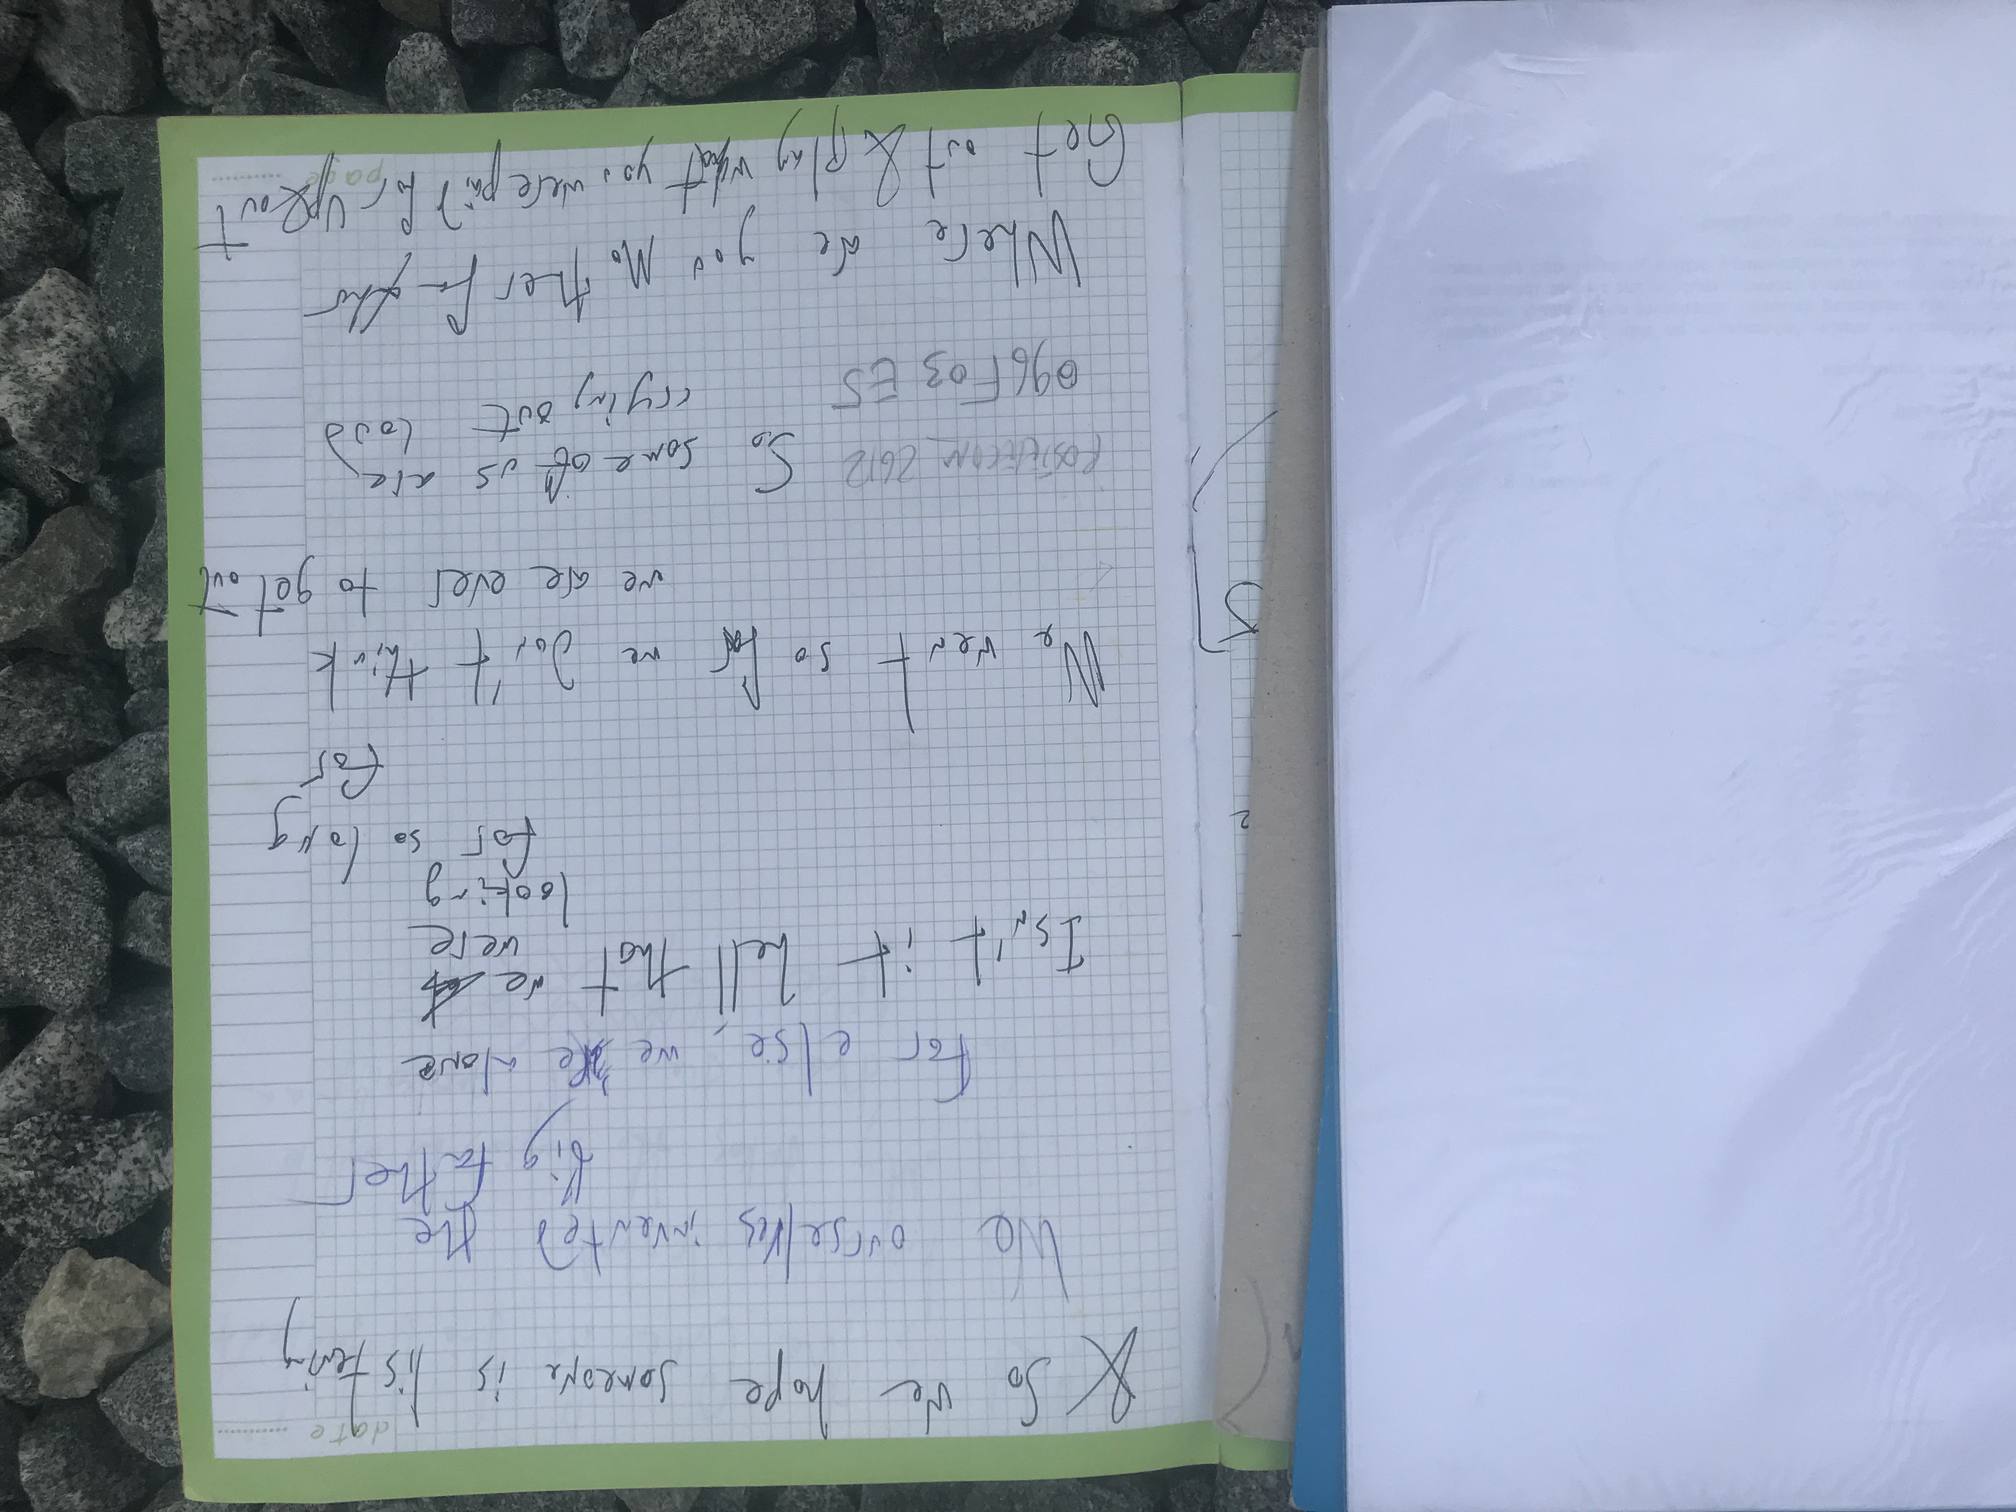 date
& So we hope someone is listening
We ourselves invented the
big father
for else, we are alone
Isn't it hell that we
were
looking
for so long
for
We went so far we don't think
we are ever to get out
So some of us are
crying out loud
096F03E5
Where are you Mother father
Get out & play what you were paid for
page